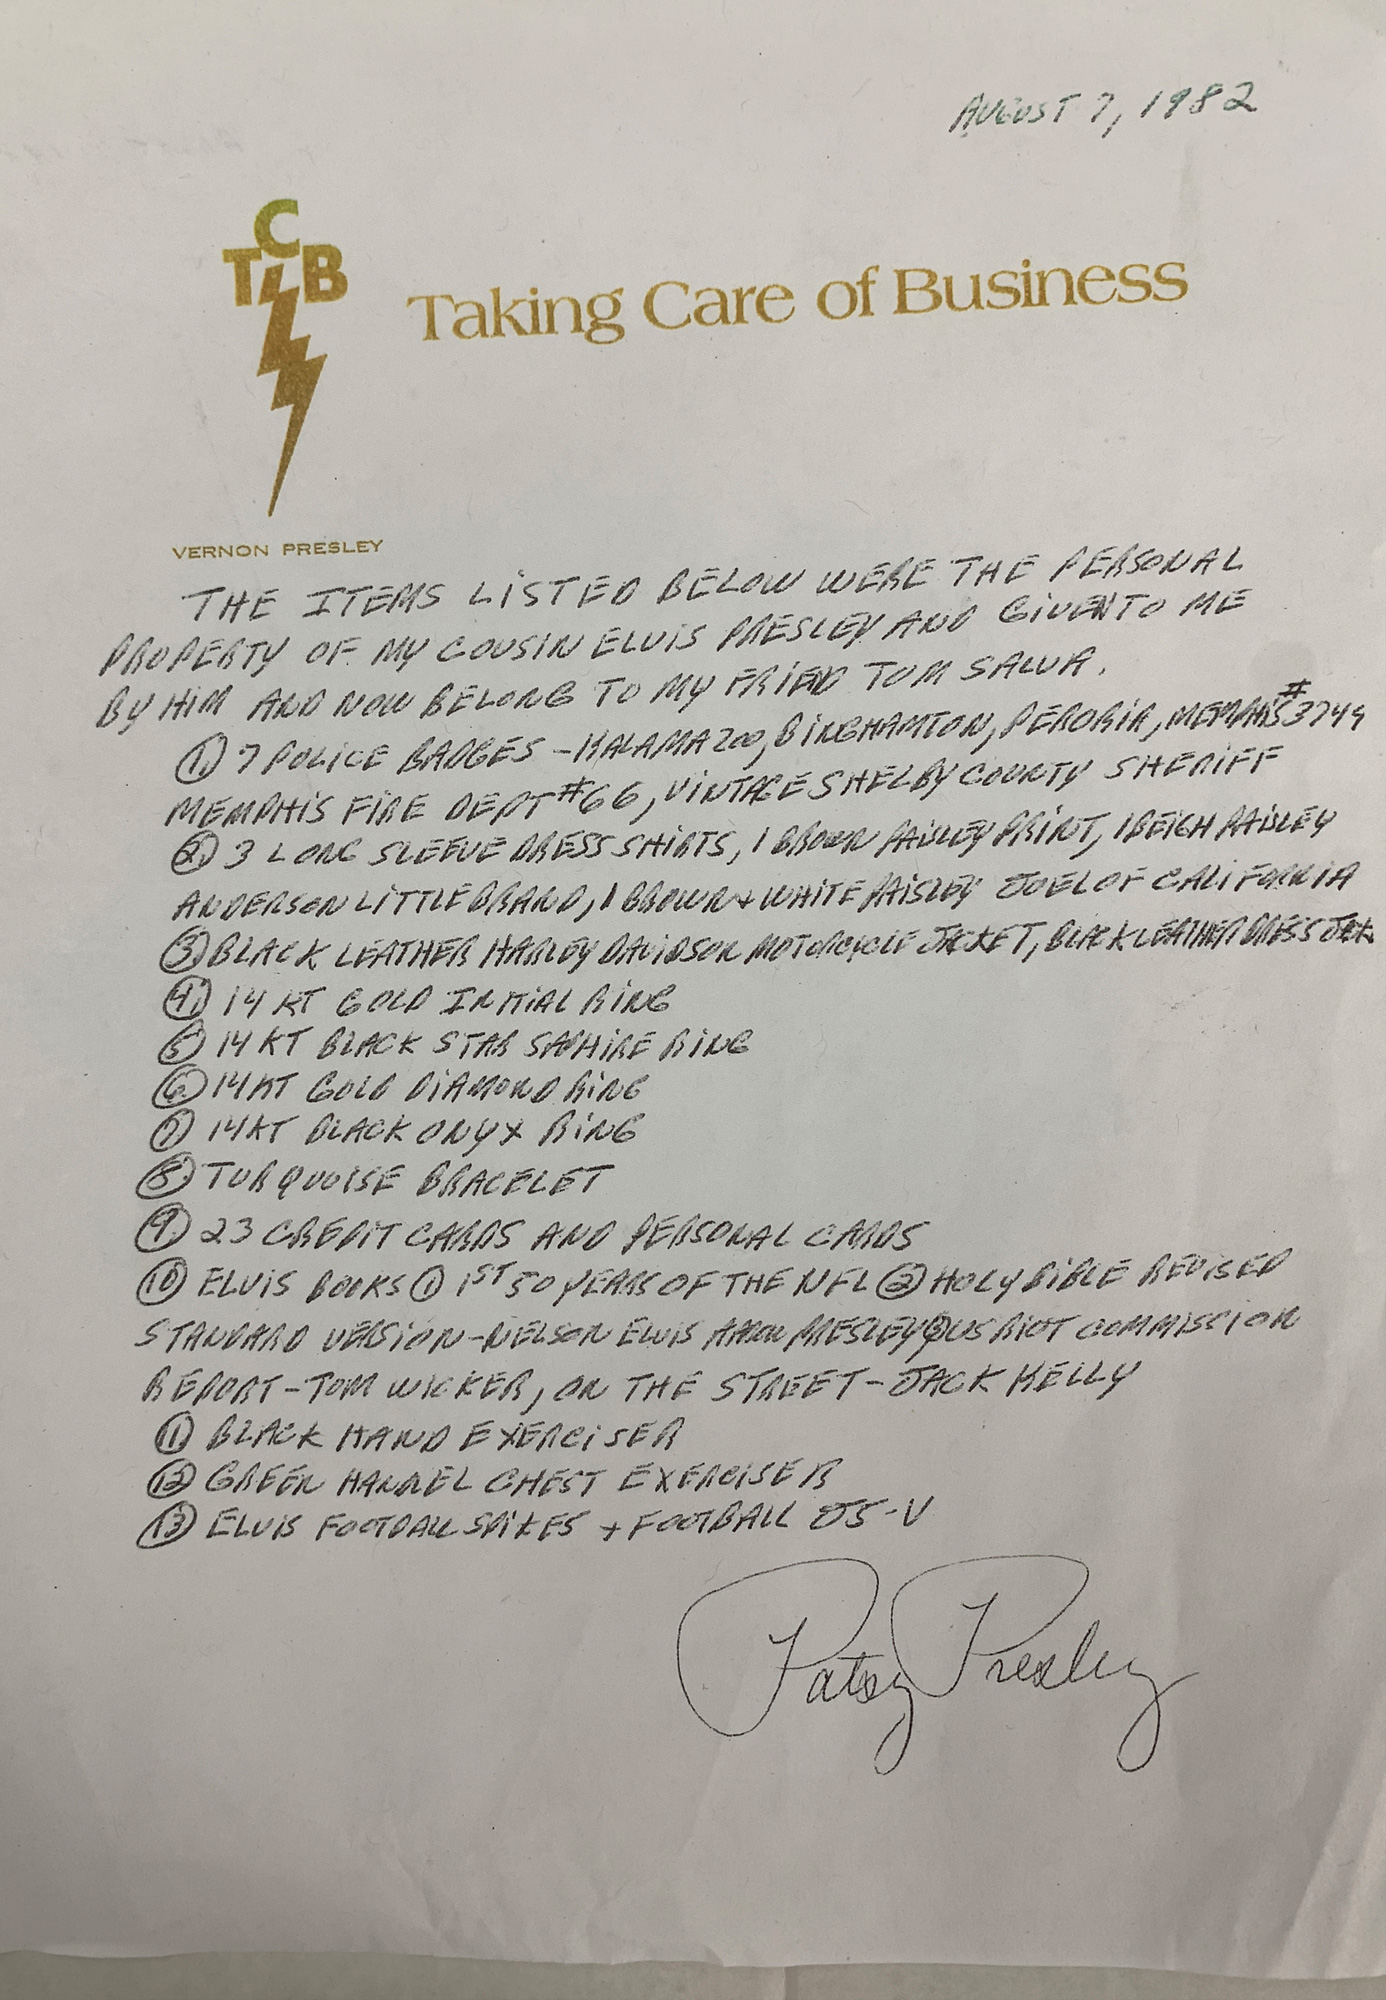 AUGUST 7, 1982
TCB
Taking Care of Business
VERNON PRESLEY
THE ITEMS LISTED BELOW WERE THE PERSONAL
PROPERTY OF MY COUSIN ELVIS PRESLEY AND GIVEN TO ME
BY HIM AND NOW BELONG TO MY FRIEND TOM SALVA.
1. 7 POLICE BADGES - KALAMAZOO, BINGHAMTON, PERORIA, MEMPHIS #3749
MEMPHIS FIRE DEPT #66, VINTAGE SHELBY COUNTY SHERIFF
2. 3 LONG SLEEVE DRESS SHIRTS, 1 BROWN PAISLEY PRINT, 1 BEIGH PAISLEY
ANDERSON LITTLE BRAND, 1 BROWN + WHITE PAISLEY JOEL OF CALIFORNIA
3. BLACK LEATHER HARLEY DAVIDSON MOTORCYCLE JACKET, BLACK LEATHER DRESS
4. 14 KT GOLD INITIAL RING
5. 14 KT BLACK STAR SAPHIRE RING
6. 14 KT GOLD DIAMOND RING
7. 14 KT BLACK ONYX RING
8. TURQUOISE BRACELET
9. 23 CREDIT CARDS AND PERSONAL CARDS
10 ELVIS BOOKS 1 1ST 50 YEARS OF THE NFL 2 HOLY BIBLE REVISED
STANDARD VERSION-NIELSON ELVIS AARON PRESLEY 3 US RIOT COMMISSION
REPORT-TOM WICKER, ON THE STREET-JACK KELLY
11 BLACK HAND EXERCISER
12 GREEN HANDEL CHEST EXERCISER
13 ELVIS FOOTBALL SPIKES + FOOTBALL J5-V
Patsy Presley